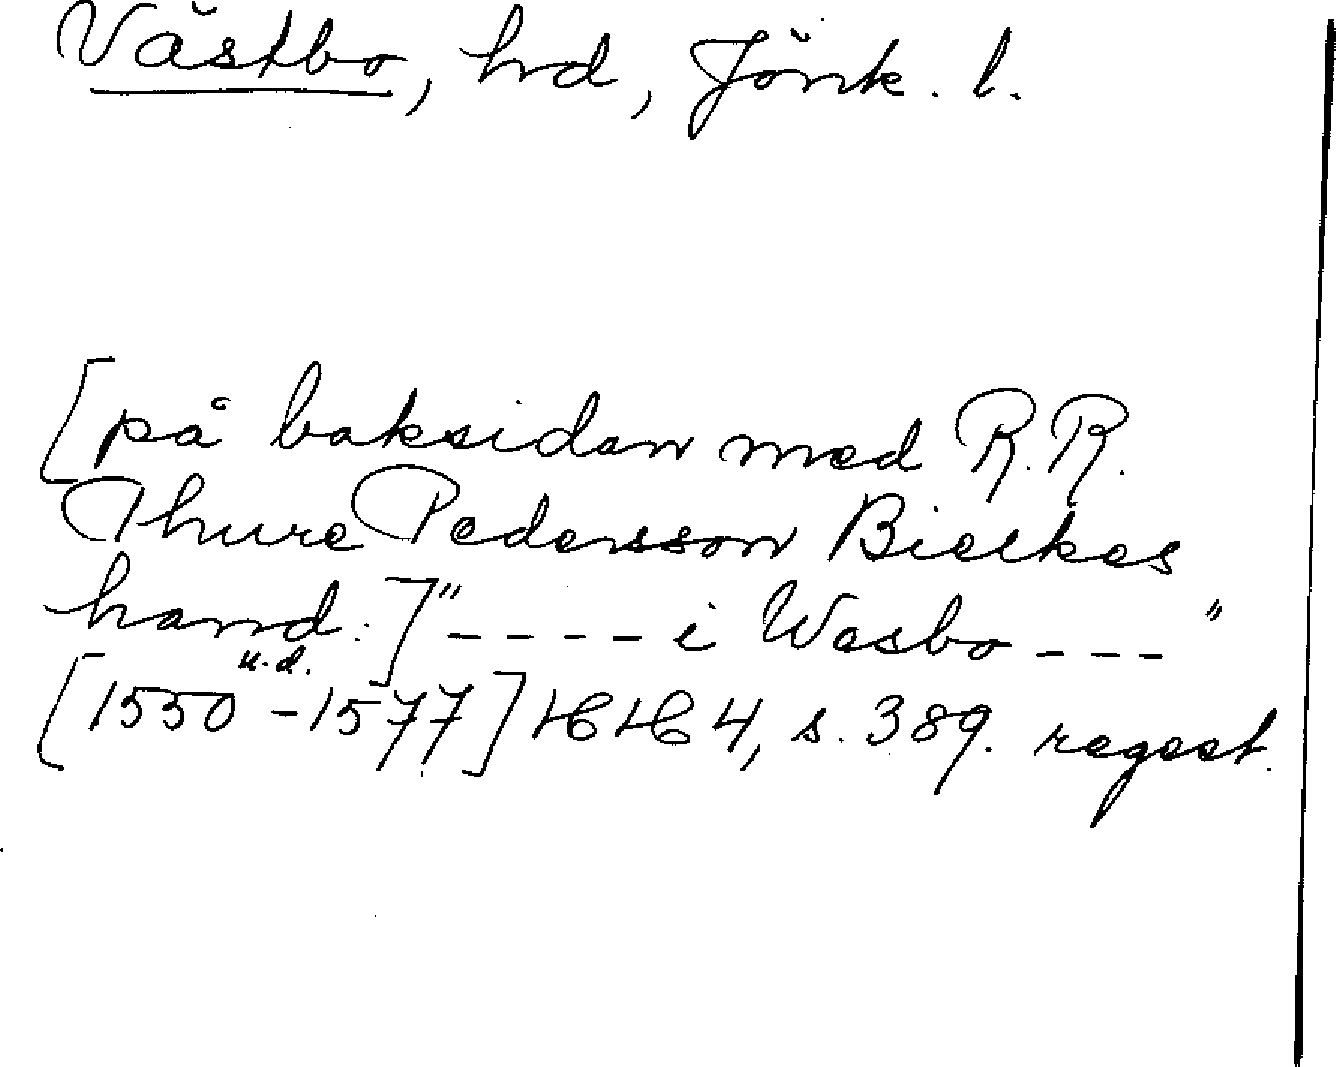 Västbo, hrd, Jönk. l.
[på baksidan med R.R.
Thure Pedersson Bielkes
hand.]"---- i Wesbo ---"
u.d.
[1550 -1577] HH 4, s. 389. regest.